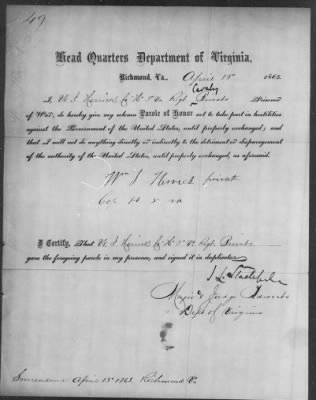 49
Head Quarters Department of Virginia,
Richmond, Va., April 18 1865.
Cavalry
I, W. J. Co. H 5 Va Regt Private Prisoner
of War, do hereby give my solemn Parole of Honor not to take part in hostilities
against the Government of the United States, until properly exchanged; and
that I will not do anything directly or indirectly to the detriment or disparagement
of the authority of the United States, until properly exchanged, as aforesaid.
Wm J private
Co H 5 va
I Certify, That W. J. Co. H 5 Va Regt. Private
gave the foregoing parole in my presence, and signed it in duplicate.
Judge Advocate
Dept of Virginia
Surrendered April 18" 1865. Richmond Va